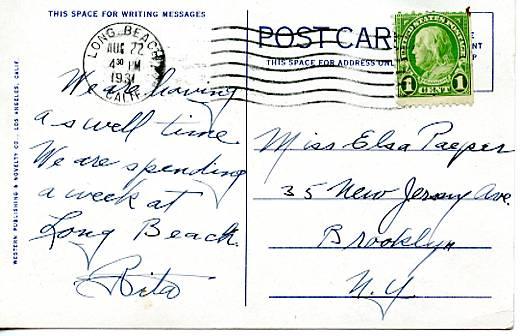 THIS SPACE FOR WRITING MESSAGES
LONG BEACH
AUG 22
4 30 PM
1931
CALIF.
We are having
a swell time
We are spending
a week at
Long Beach.
Rita
WESTERN PUBLISHING & NOVELTY CO. LOS ANGELES, CALIF.
POST CAR
THIS SPACE FOR ADDRESS ONL
UNITED STATES POSTAGE
FRANKLIN
1 CENT 1
Miss Elsa Paeper
35 New Jersey Ave.
Brooklyn
N.Y